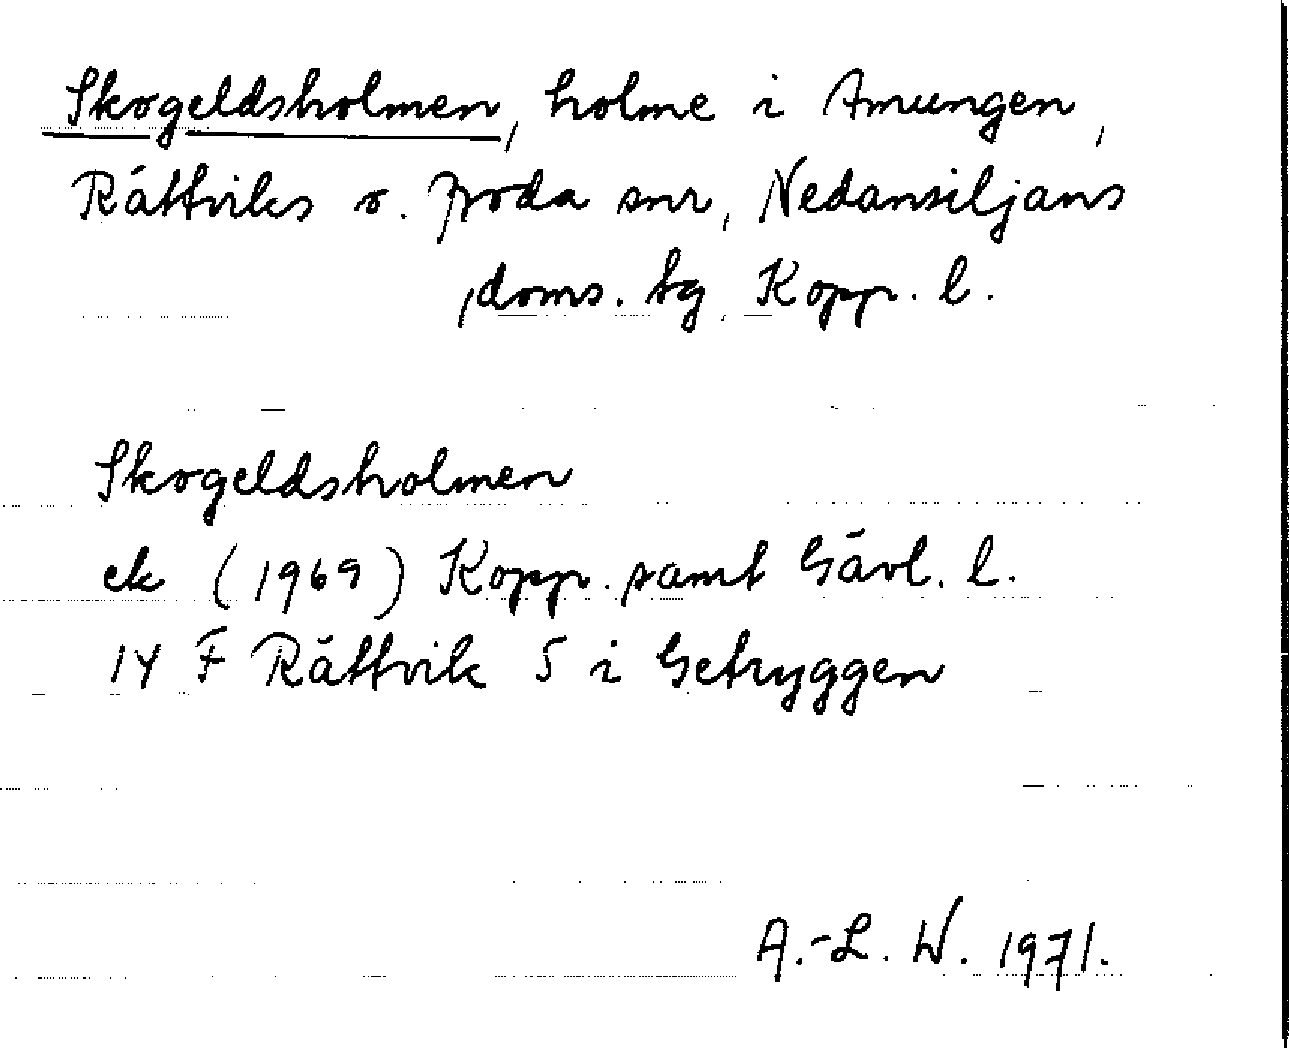 Skogeldsholmen, holme i Amungen,
Rättviks o. Boda snr, Nedansiljans
doms. tg, Kopp. l.
Skogeldsholmen
ek (1969) Kopp. samt Gävl. l.
14 F Rättvik 5 i Getryggen
A.-L. W. 1971.